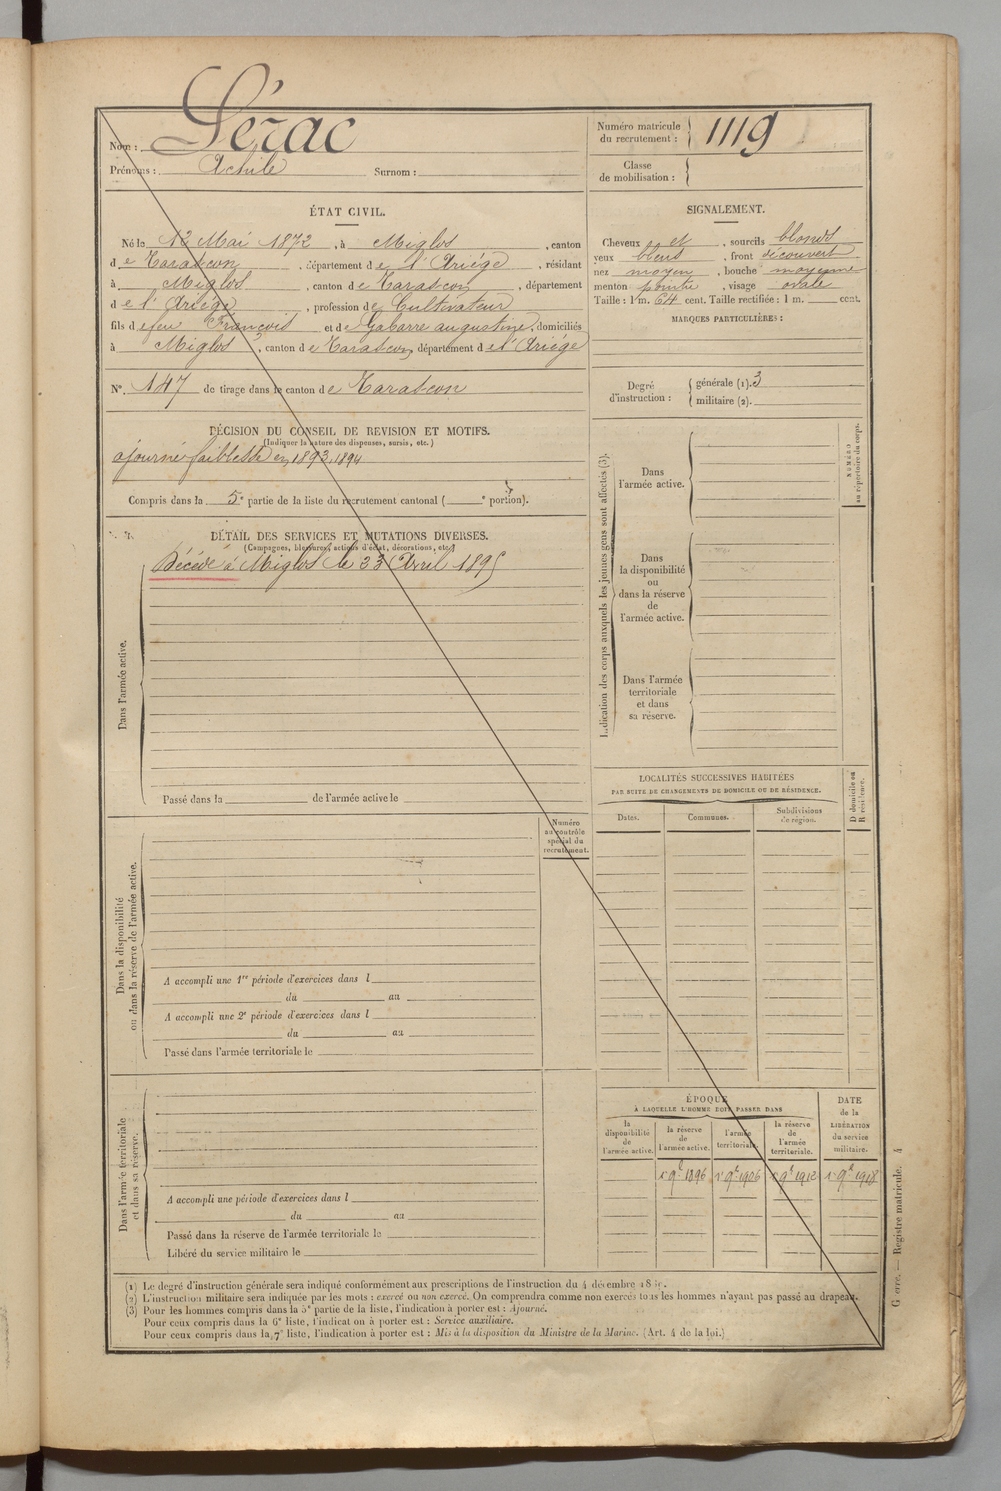 Nom : Lérac
Prénoms : Achile Surnom :
Numéro matricule du recrutement : 1119
Classe de mobilisation :
ÉTAT CIVIL.
Né le 12 Mai 1872, à Miglos, canton
de Tarascon, département de l'Ariége, résidant
à Miglos, canton de Tarascon, département
de l'Ariége, profession de Cultivateur
fils de feu François et de Gabarre augustine, domiciliés
à Miglos, canton de Tarascon, département de l'Ariége
N°. 147 de tirage dans le canton de Tarascon
SIGNALEMENT.
Cheveux et, sourcils blonds
yeux bleus, front découvert
nez moyen, bouche moyenne
menton pointu, visage ovale
Taille : 1 m. 64 cent. Taille rectifiée : 1 m. cent.
MARQUES PARTICULIÈRES :
Degré d'instruction : générale (1). 3
militaire (2).
DÉCISION DU CONSEIL DE REVISION ET MOTIFS.
(Indiquer la nature des dispenses, sursis, etc.)
ajourné faiblesse en 1893, 1894
Compris dans la 5e partie de la liste du recrutement cantonal ( e portion).
DÉTAIL DES SERVICES ET MUTATIONS DIVERSES.
(Campagnes, blessures, actions d'éclat, décorations, etc.)
Décédé à Miglos le 23 Avril 1895
Dans l'armée active.
Passé dans la de l'armée active le
Indication des corps auxquels les jeunes gens sont affectés (3).
Dans
l'armée active.
Dans
la disponibilité
ou
dans la réserve
de
l'armée active.
Dans l'armée
territoriale
et dans
sa réserve.
NUMÉRO
au répertoire du corps.
LOCALITÉS SUCCESSIVES HABITÉES
PAR SUITE DE CHANGEMENTS DE DOMICILE OU DE RÉSIDENCE.
Dates.
Communes.
Subdivisions
de région.
D domicile ou
R résidence.
Numéro
au contrôle
spécial du
recrutement.
Dans la disponibilité
ou dans la réserve de l'armée active.
A accompli une 1re période d'exercices dans l
du au
A accompli une 2e période d'exercices dans l
du au
Passé dans l'armée territoriale le
Dans l'armée territoriale
et dans sa réserve.
A accompli une période d'exercices dans l
du au
Passé dans la réserve de l'armée territoriale le
Libéré du service militaire le
ÉPOQUE
À LAQUELLE L'HOMME DOIT PASSER DANS
la
disponibilité
de
l'armée active.
la réserve
de
l'armée active.
l'armée
territoriale.
la réserve
de
l'armée
territoriale.
DATE
de la
LIBÉRATION
du service
militaire.
1er 9bre 1896 1er 9bre 1906 1er 9bre 1912 1er 9bre 1918
(1) Le degré d'instruction générale sera indiqué conformément aux prescriptions de l'instruction du 4 décembre
(2) L'instruction militaire sera indiquée par les mots : exercé ou non exercé. On comprendra comme non exercés tous les hommes n'ayant pas passé au drapeau.
(3) Pour les hommes compris dans la 5e partie de la liste, l'indication à porter est : Ajourné.
Pour ceux compris dans la 6e liste, l'indication à porter est : Service auxiliaire.
Pour ceux compris dans la 7e liste, l'indication à porter est : Mis à la disposition du Ministre de la Marine. (Art. 4 de la loi.)
Guerre. — Registre matricule. 4